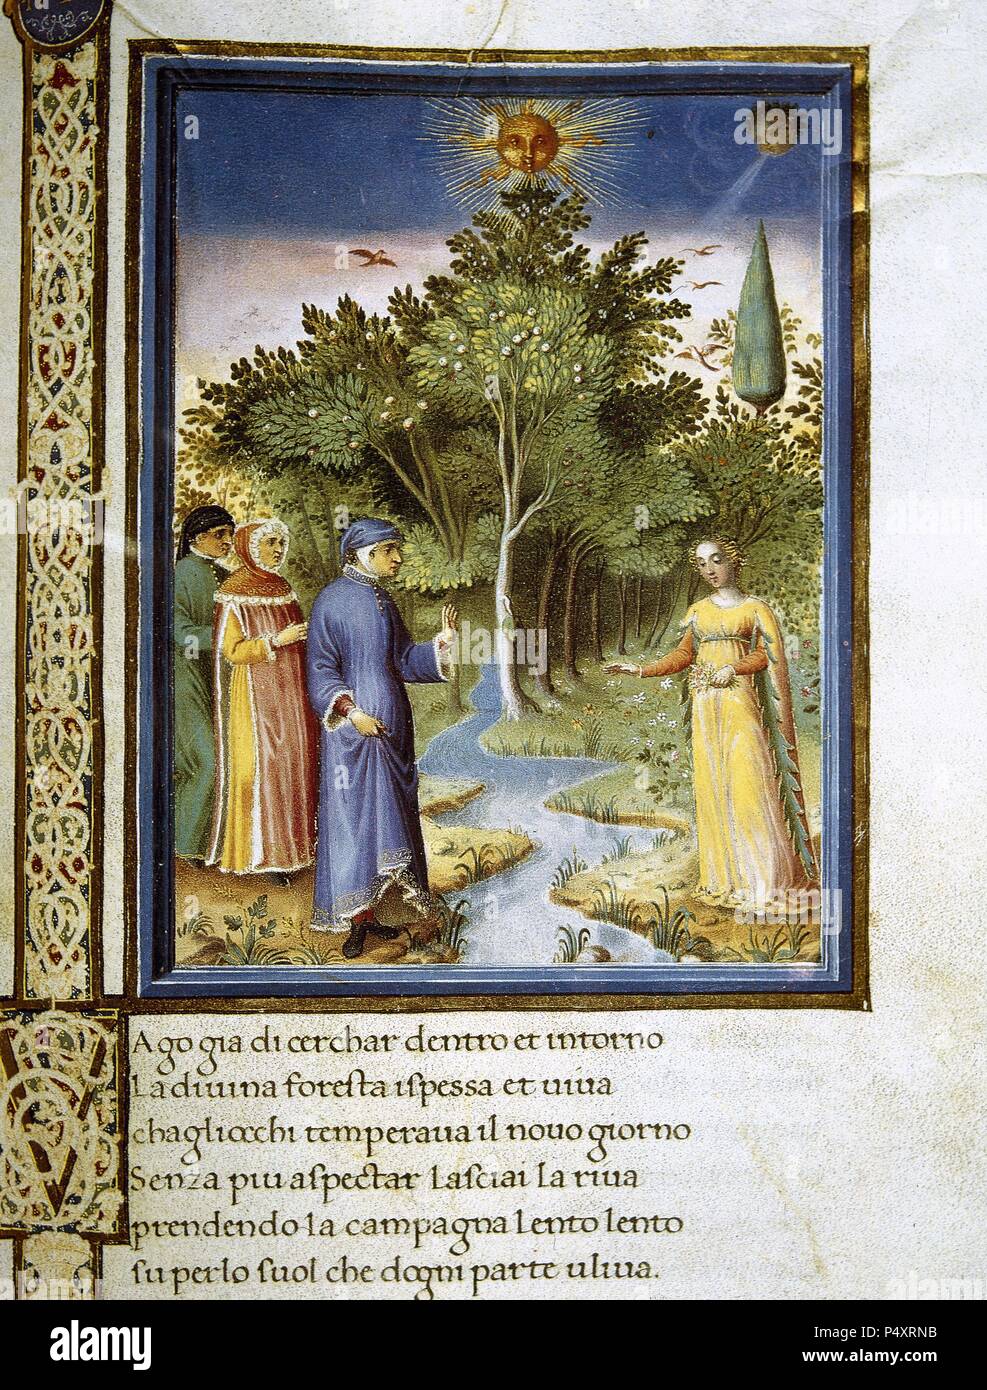 V
Ago gia di cerchar dentro et intorno
La divina foresta ispessa et viva
chagliocchi temperava il novo giorno
Senza piu aspectar lasciai la riva
prendendo la campagna lento lento
su perlo suol che dogni parte uliva.
a
alamy
Image ID: P4XRNB
www.alamy.com